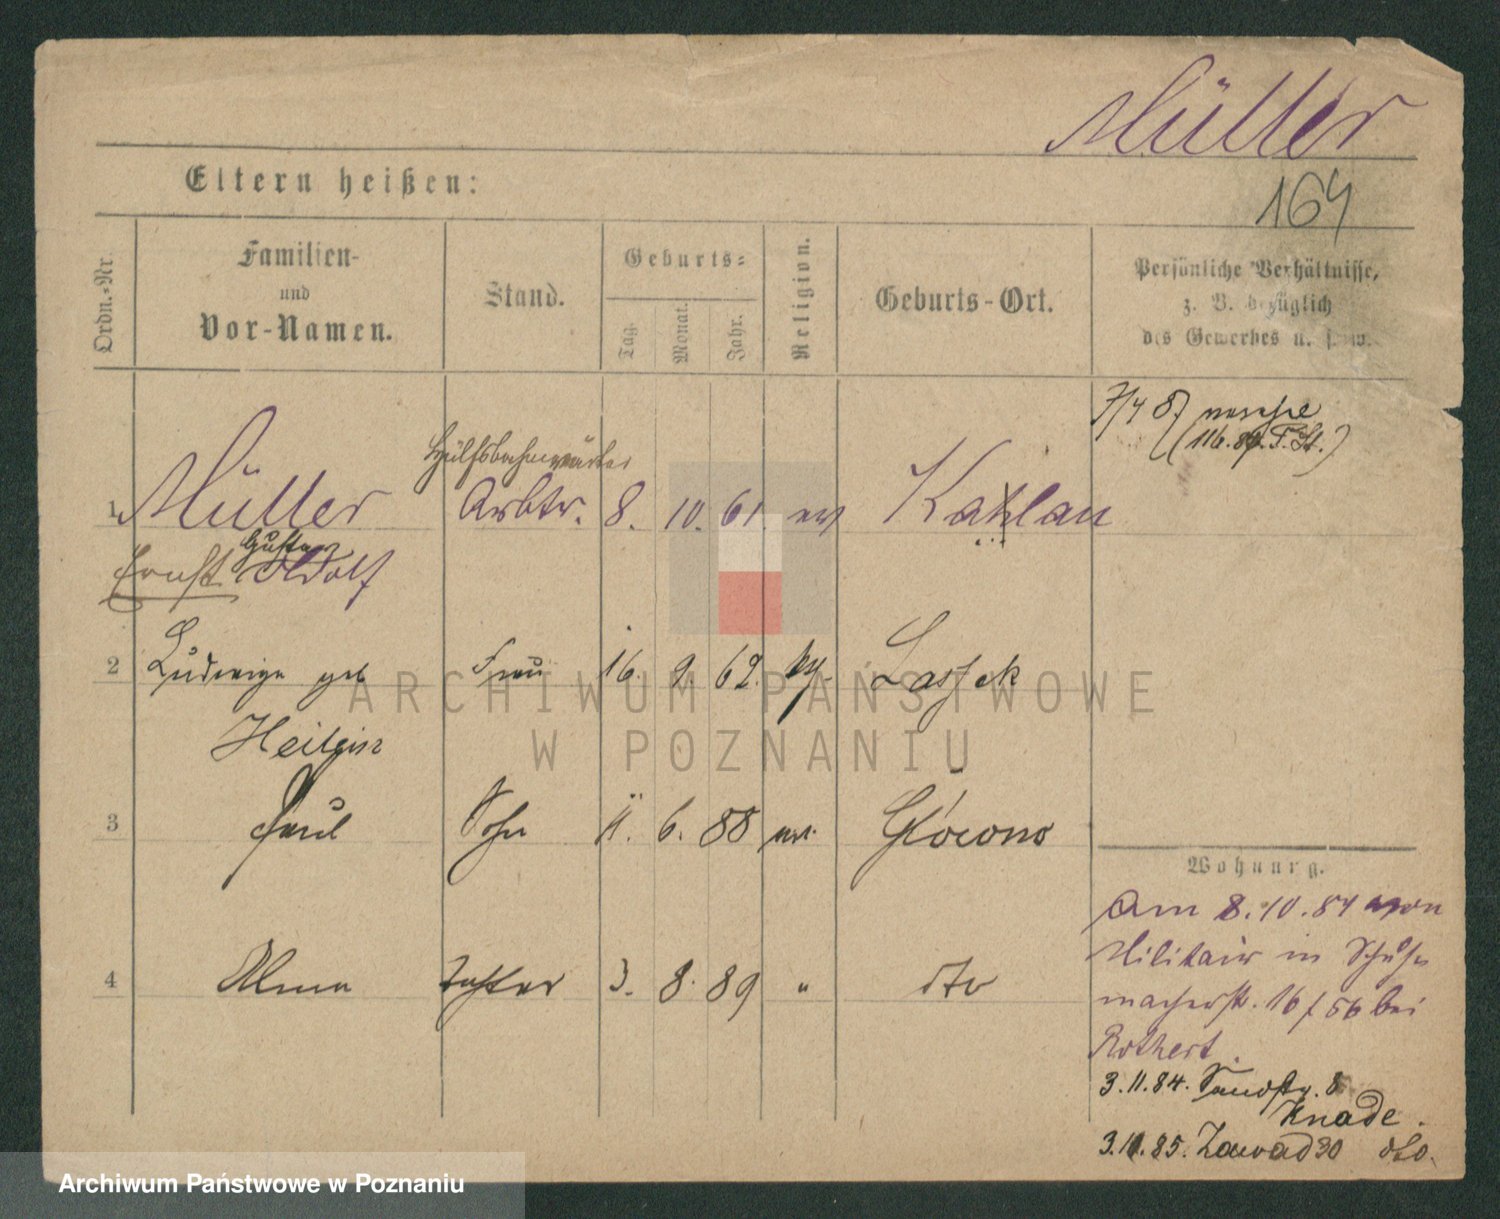 Müller
Eltern heißen:
164
Ordn.-Nr.
Familien-
und
Vor-Namen.
Stand.
Geburts-
Tag.
Monat.
Jahr.
Religion.
Geburts-Ort.
Persönliche Verhältnisse,
z. B. bezüglich
des Gewerbes u. s. w.
7/4 87
Hülfsbahnwärter
1 Müller Arbtr. 8. 10. 61. ev
Gustav
Ernst Adolf
2 Ludwiga geb Frau 16. 9. 62. Lassek
3 Paul Sohn 11. 6. 88 ev. Glowno
4 Alma Tochter 3. 8. 89 " dto
Wohnung.
Am 8.10.84 von
Militair in Schuh-
macherstr. 16/56 bei
Rothert.
3.11.84. Sandstr. 8
Knade.
3.11.85. Zawade 30 dto.
ARCHIWUM PAŃSTWOWE
W POZNANIU
Archiwum Państwowe w Poznaniu